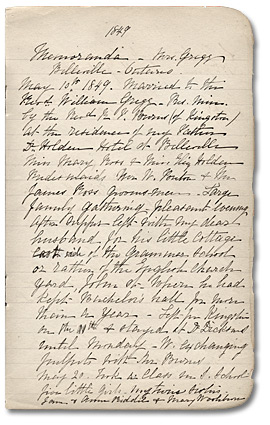 1849
Memoranda - Mrs. Gregg
Belleville - Ontario
May 10th 1849. Married to the
Revd. William Gregg - Pres. Min.
by the Revd. (of Kingston)
at the residence of my Father
D. Holden Hotel St. Belleville
Miss Mary Ross & Miss Holden
Brides maids Hon W. Ponton & Mr
James Ross Groomsmen - Large
family gathering pleasant evening
after supper left with my dear
husband for his little Cottage
East side of the Grammar School
or rather of the English Church
yard John St. where he had
kept Bachelor's hall for more
than a year - Left for Kingston
on the 11th & stayed at Dicksons
until Monday - W. exchanging
pulpits with Mr
May 20. Took a Class in S. School
five little Girls.
& Annie Riddell & Mary Washburn